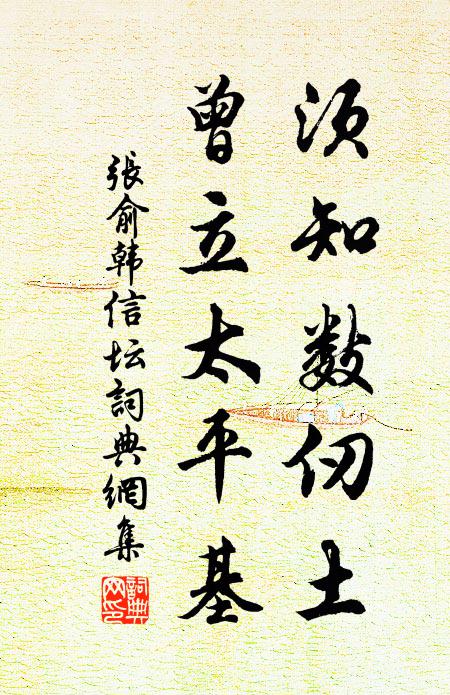 须知数仞土
曾立太平基
張俞韩信坛詞典網集
詞典
网印